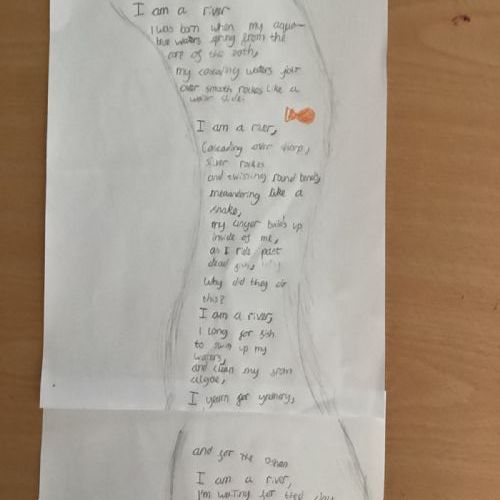 I am a river
I was born when my aqua-
blue waters spring from the
core of the earth,
my cascading waters
over smooth rockes like a
water slide.
I am a river,
Cascading over sharp,
silver rockes
and twisting round bends,
meandering like a
snake,
my anger builds up
inside of me,
as I ride past
dead
Why did they do
this?
I am a river,
I long for fish
to swim up my
waters,
and clean my
algae,
I yearn for
and for the
I am a river,
I'm waiting for that day